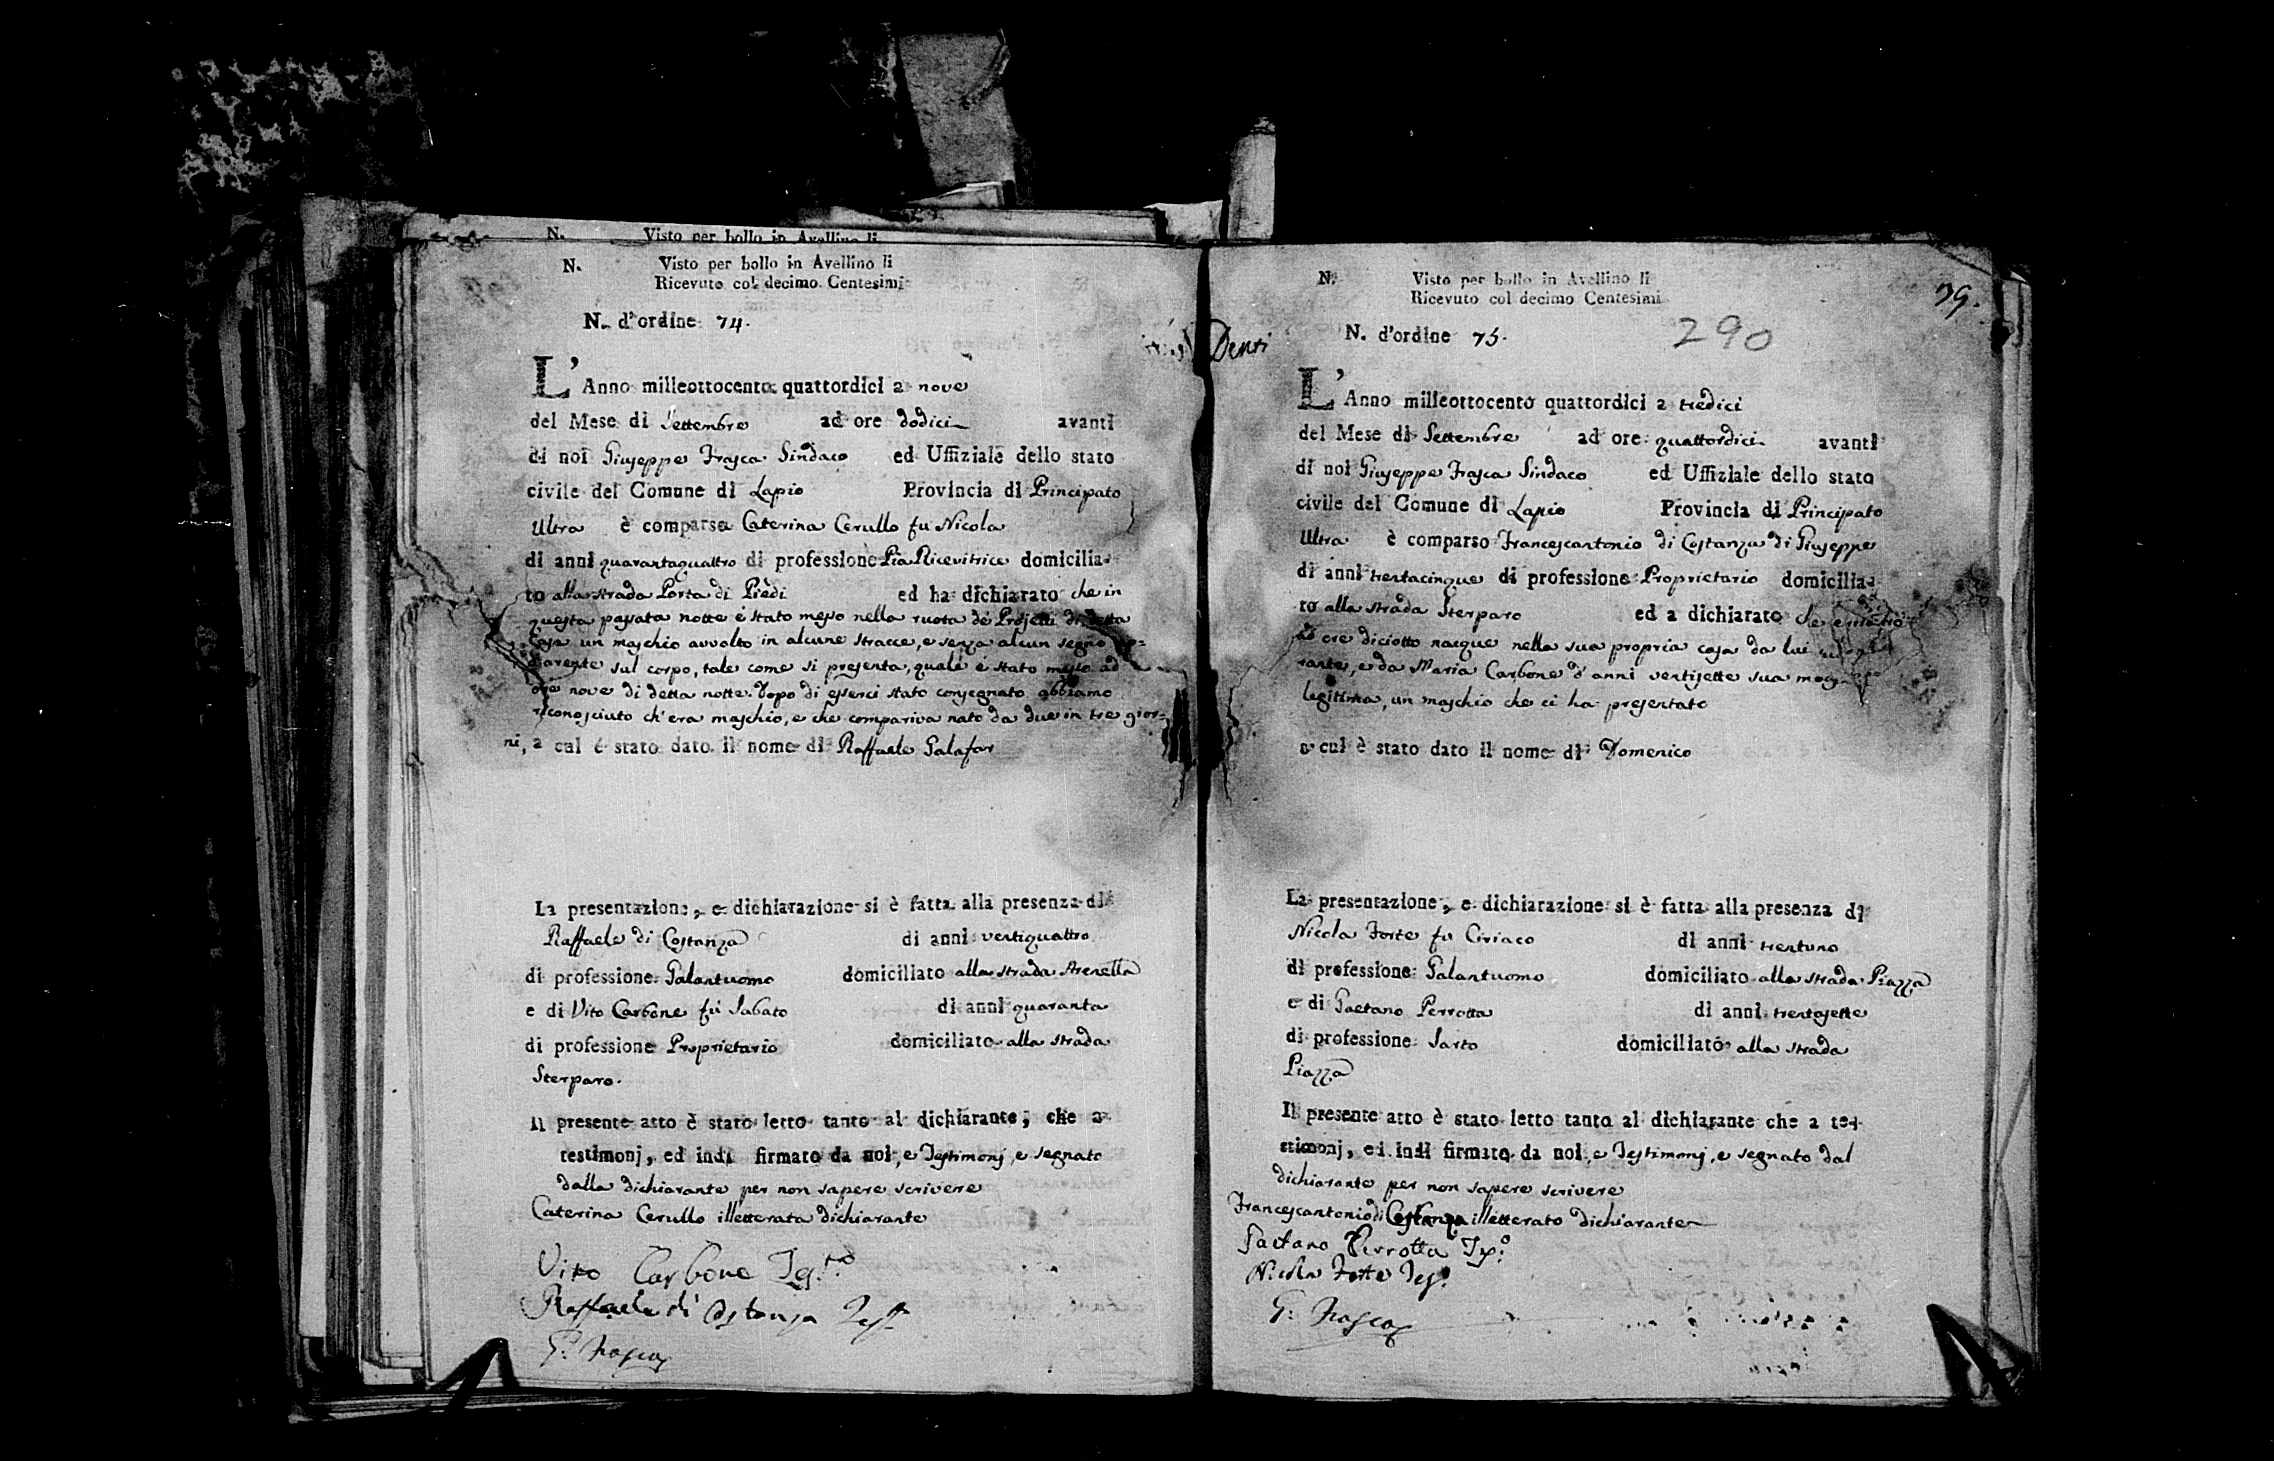 N. Visto per bollo in Avellino li
N. Visto per bollo in Avellino li
Ricevuto col decimo Centesimi
N. d'ordine 74.
L'Anno milleottocento quattordici a nove
del Mese di Settembre ad ore dodici avanti
di noi Giuseppe Frasca Sindaco ed Uffiziale dello stato
civile del Comune di Lapio Provincia di Principato
Ultra è comparsa Caterina Cerullo fu Nicola
di anni quarantaquattro di professione Pia Ricevitrice domicilia-
to alla strada Porta di Piedi ed ha dichiarato che in
questa passata notte è stato messo nella ruota de' Projetti di detta
Casa un maschio avvolto in alcune stracce, e senza alcun segno ap-
parente sul corpo, tale come si presenta, quale è stato messo ad
ore nove di detta notte. Dopo di esserci stato consegnato abbiamo
riconosciuto ch'era maschio, e che compariva nato da due in tre gior-
ni, a cui è stato dato il nome di Raffaele Galafar
La presentazione, e dichiarazione si è fatta alla presenza di
Raffaele di Costanza di anni ventiquattro
di professione Galantuomo domiciliato alla strada Arenella
e di Vito Carbone fu Sabato di anni quaranta
di professione Proprietario domiciliato alla strada
Sterparo.
Il presente atto è stato letto tanto al dichiarante, che a
testimonj, ed indi firmato da noi, e Testimonj, e segnato
dalla dichiarante per non sapere scrivere
Caterina Cerullo illetterata dichiarante
Vito Carbone Tes.to
Raffaele di Costanza Test.
G. Frasca
Denti
39.
N. Visto per bollo in Avellino li
Ricevuto col decimo Centesimi
290
N. d'ordine 75.
L'Anno milleottocento quattordici a tredici
del Mese di Settembre ad ore quattordici avanti
di noi Giuseppe Frasca Sindaco ed Uffiziale dello stato
civile del Comune di Lapio Provincia di Principato
Ultra è comparso Francescantonio di Costanza di Giuseppe
di anni trentacinque di professione Proprietario domicilia-
to alla strada Sterparo ed a dichiarato
ore diciotto nacque nella sua propria casa da lui
rante, e da Maria Carbone d'anni ventisette sua
legitima, un maschio che ci ha presentato
a cui è stato dato il nome di Domenico
La presentazione, e dichiarazione si è fatta alla presenza di
Nicola Forte fu Ciriaco di anni trentuno
di professione Galantuomo domiciliato alla strada Piazza
e di Gaetano Perrotta di anni trentasette
di professione Sarto domiciliato alla strada
Piazza
Il presente atto è stato letto tanto al dichiarante che a te-
stimonj, ed indi firmato da noi, e Testimonj, e segnato dal
dichiarante per non sapere scrivere
Francescantonio di Costanza illetterato dichiarante
Gaetano Perrotta Tes.o
Nicola Forte Tes.o
G. Frasca